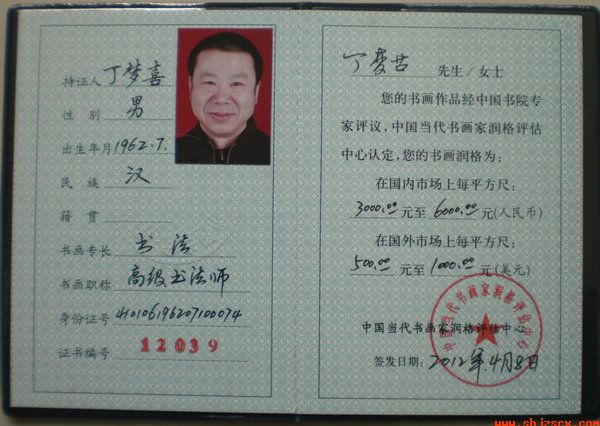 持证人 丁梦喜
性 别 男
出生年月 1962.7.
民 族 汉
籍 贯
书画专长 书法
书画职称 高级书法师
身份证号 410106196207100074
证书编号 12039
丁梦喜 先生/女士
您的书画作品经中国书院专
家评议,中国当代书画家润格评估
中心认定,您的书画润格为:
在国内市场上每平方尺:
3000.00元至6000.00元(人民币)
在国外市场上每平方尺:
500.00元至1000.00元(美元)
中国当代书画家润格评估中心
签发日期:2012年.4月8日
中国当代书画家润格评估中心
www.shjzscx.com